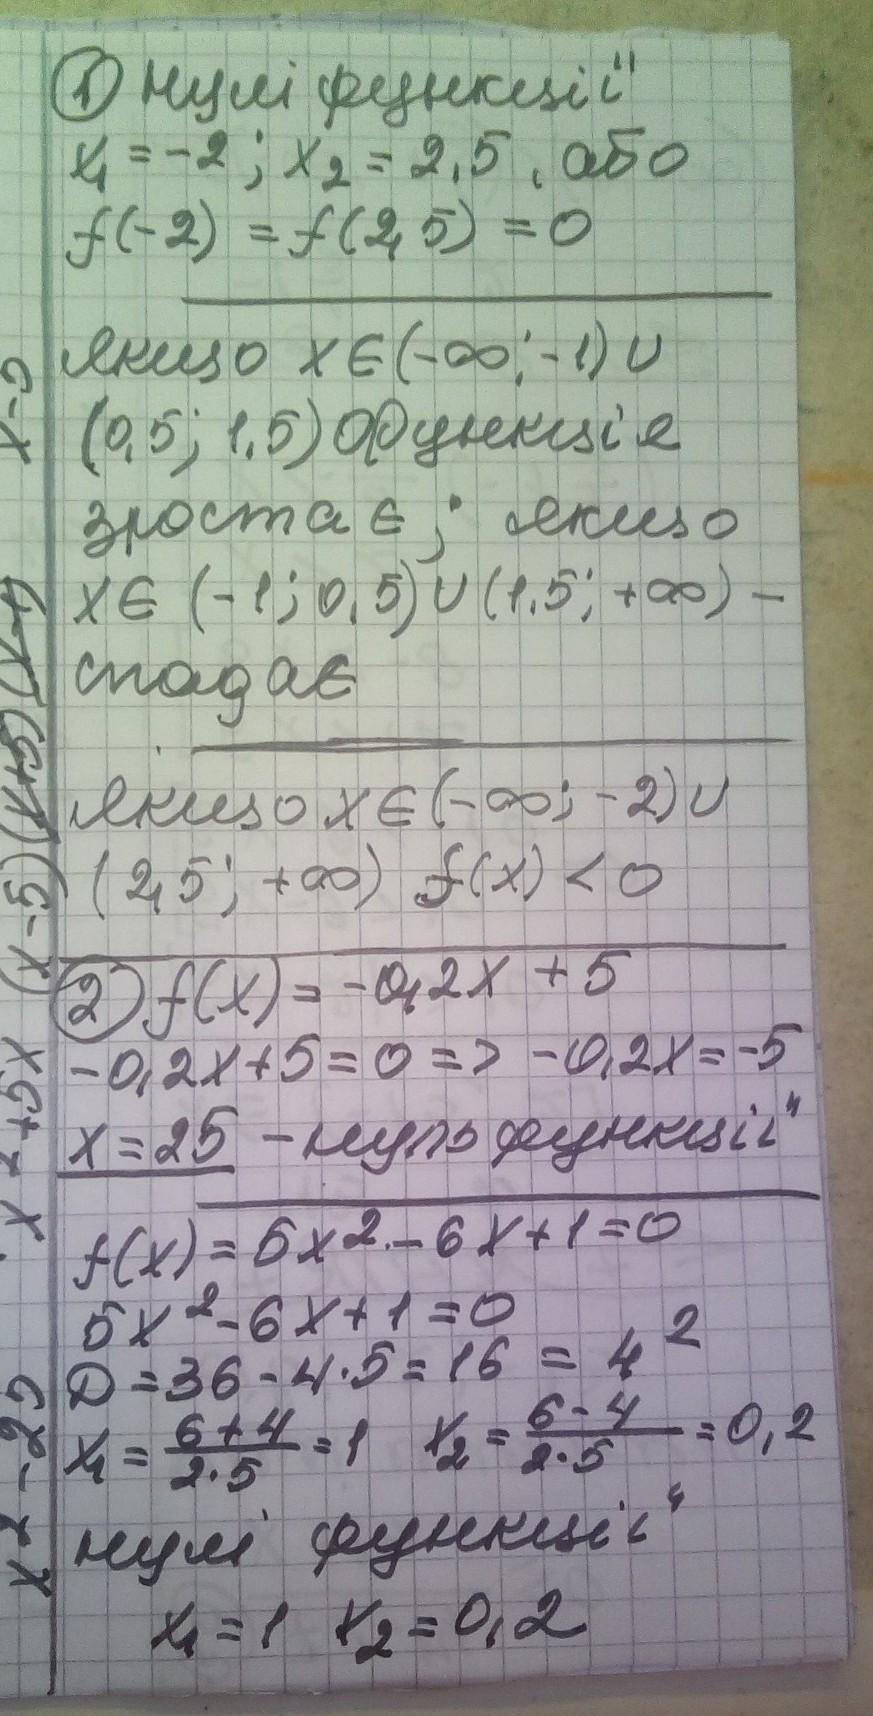 1) Нулі функції
x₁ = -2; x₂ = 2,5, або
f(-2) = f(2,5) = 0
Якщо x∈(-∞; -1)∪
(0,5; 1,5) функція
зростає; якщо
x∈ (-1; 0,5)∪(1,5; +∞) –
спадає
Якщо x∈(-∞; -2)∪
(2,5; +∞) f(x) < 0
2) f(x) = -0,2x + 5
-0,2x+5=0 => -0,2x=-5
x=25 – нуль функції
f(x) = 5x² - 6x+1=0
5x² - 6x+1=0
D = 36 - 4·5 = 16 = 4²
x₁ = (6+4)/(2·5) = 1 x₂ = (6-4)/(2·5) = 0,2
нулі функції
x₁ = 1 x₂ = 0,2
x-5
x²+5x (x-5)(x+5)
x²-25